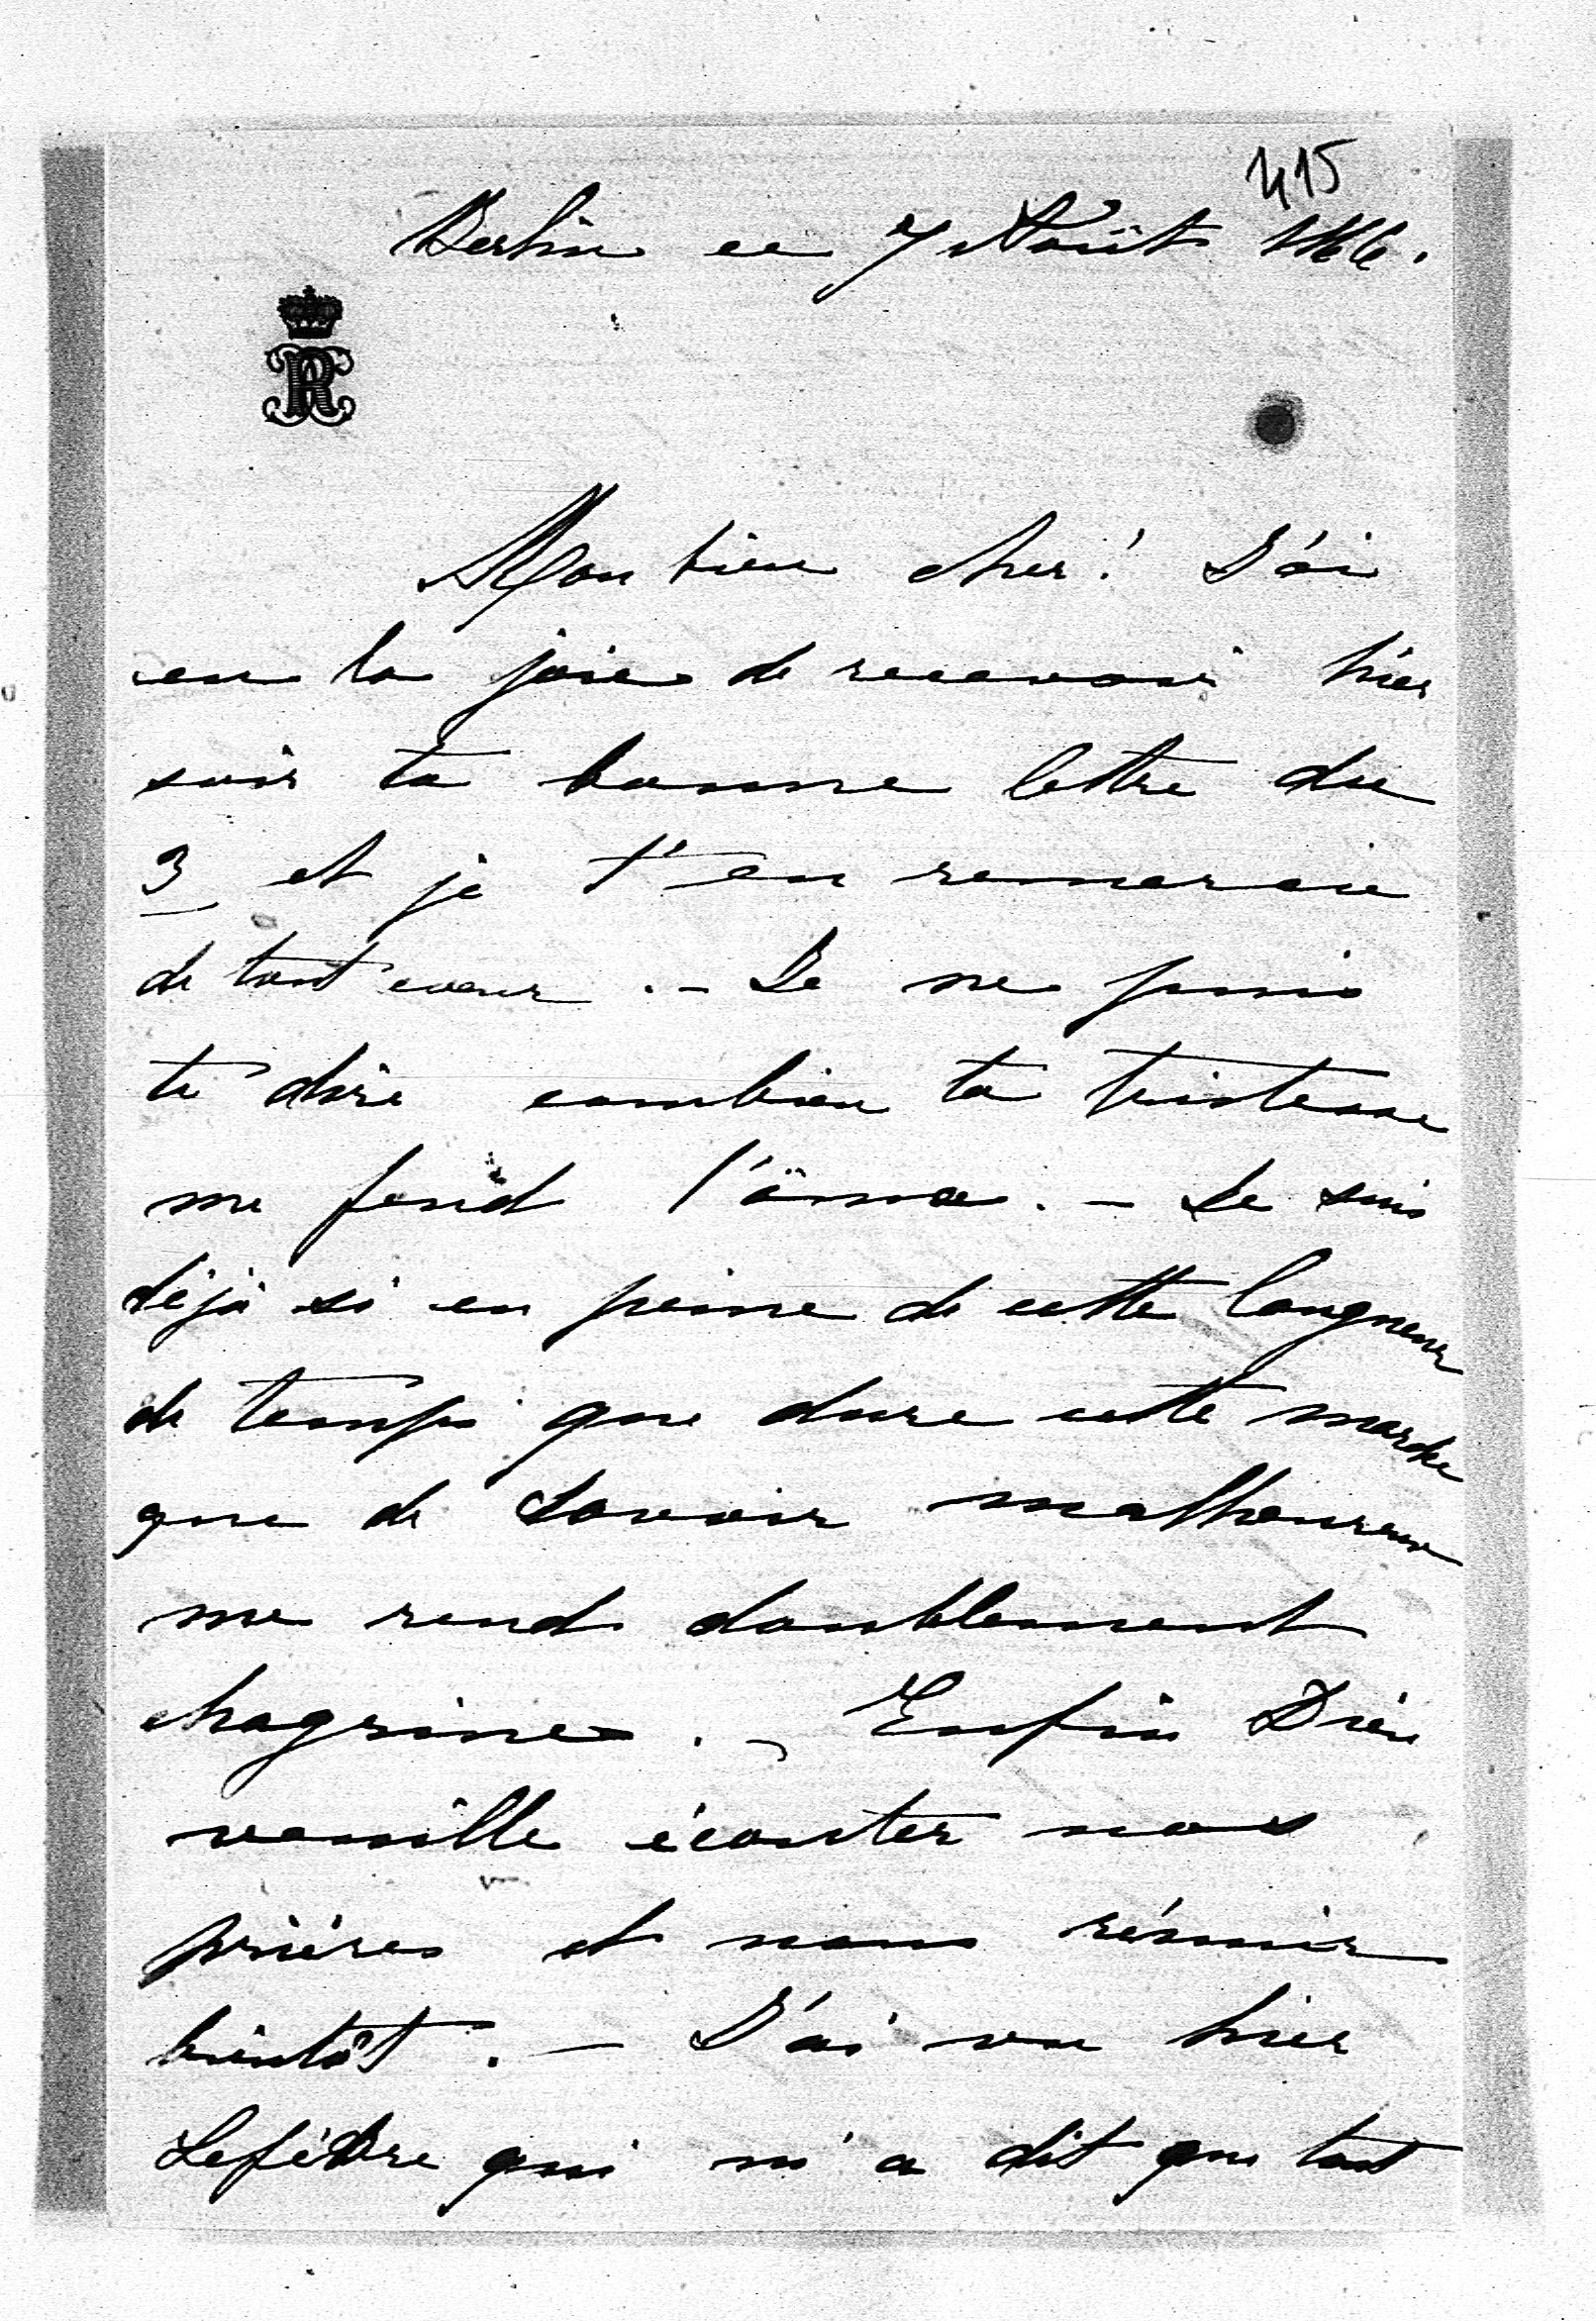 415
Berlin ce 7 Août 1866.
Mon bien cher! J'ai
eu la joie de recevoir hier
soir ta bonne lettre du
3 et je t'en remercie
de tout coeur. – Je ne puis
te dire combien ta tristesse
me fend l'âme. – Je suis
déjà si en peine de cette longueur
de temps que dure cette marche
que de savoir malheureux
me rend doublement
chagrine. – Enfin Dieu
veuille écouter nos
prières et nous réunir
bientôt. – J'ai vu hier
Lefébre qui m'a dit que tout